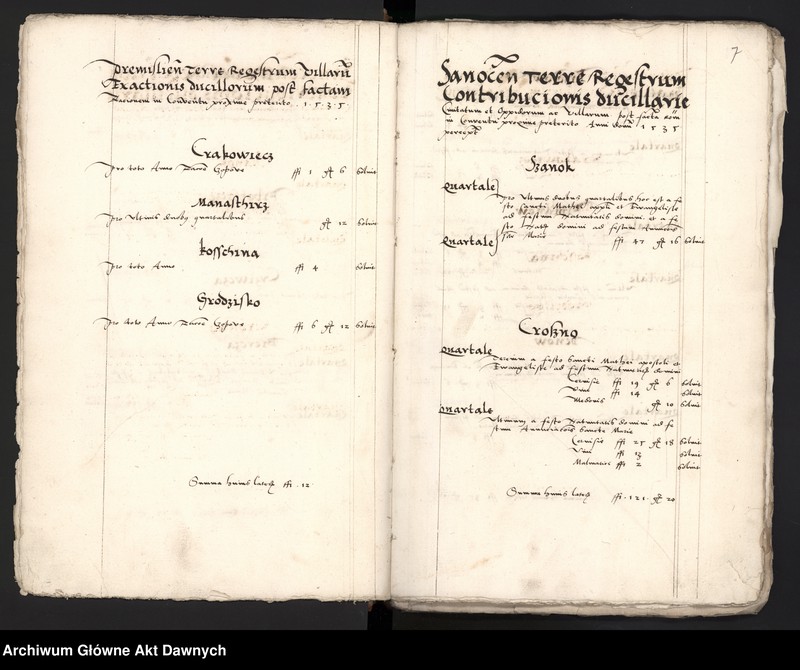 Premislien Terre Regestrum Villarum
Exactionis ducillorum post factam
Racionem in Conventu proxime preterito 1·5·3·5·
Crakowiecz
pro toto Anno
ffl 1 gr 6 solvit
Manasthirz
pro Ultimis duobus quartalibus
gr 12 solvit
Kosschina
pro toto Anno
ffl 4 solvit
Grodzisko
pro toto Anno
ffl 6 gr 12 solvit
Summa huius lateris ffl · 12 ·
7
Sanocen Terre Regestrum
Contribucionis ducillarie
Civitatum et Oppidorum ac Villarum post factam
in Conventu proxime preterito Anni domini 1535
Szanok
Quartale
pro Ultimis duobus quartalibus hoc est a fe
sto Sancti Mathei appli et Ewangeliste
ad festum Nativitatis domini et a fe
sto domini ad festum
Marie
Quartale
ffl 47 gr 16 solvit
Croszno
Quartale
Tercium a festo Sancti Mathei apostoli et
Ewangeliste ad festum Nativitatis domini
Cervisie ffl 19 gr 6 solvit
Vini ffl 14 solvit
gr 10 solvit
Quartale
Ultimum a festo Nativitatis domini ad fe
stum Annunciacionis Sancte Marie
Cervisie ffl 25 gr 18 solvit
Vini ffl 13 solvit
Malmatici ffl 2 solvit
Summa huius lateris ffl · 121 · gr 20
Archiwum Główne Akt Dawnych